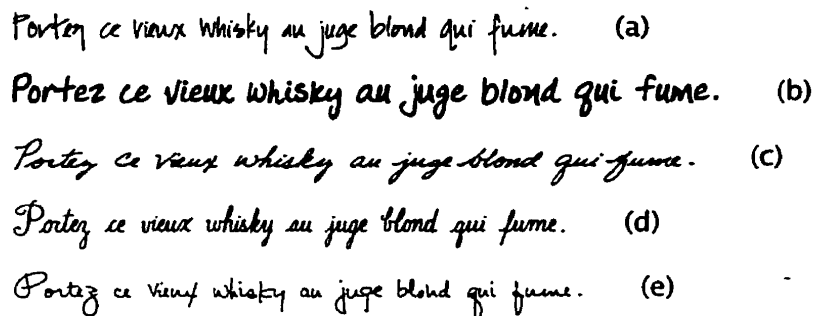 Portez ce vieux whisky au juge blond qui fume. (a)
Portez ce vieux whisky au juge blond qui fume. (b)
Portez ce vieux whisky au juge blond qui fume. (c)
Portez ce vieux whisky au juge blond qui fume. (d)
Portez ce vieux whisky au juge blond qui fume. (e)